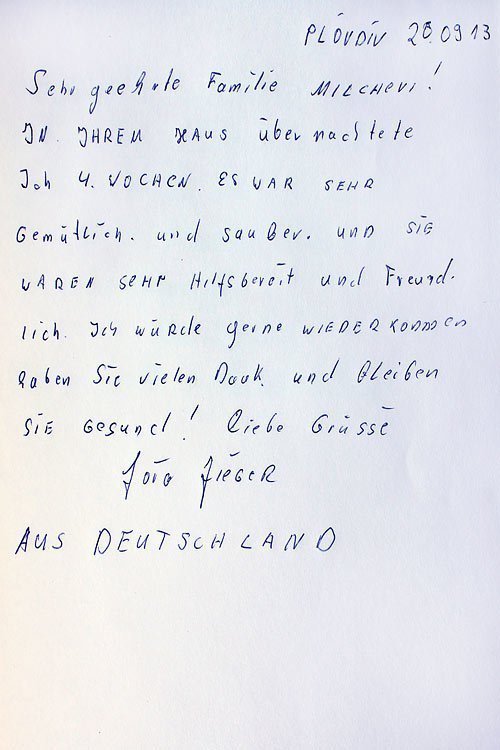 PLOVDIV 28.09 13
Sehr geehrte Familie MILCHEVI!
IN. IHREM HAUS übernachtete
Ich 4. WOCHEN. ES WAR SEHR
Gemütlich. und sauber. UND SIE
WAREN SEHR Hilfsbereit und Freund-
lich. Ich würde gerne WIEDERKOMMEN
Haben Sie vielen Dank. und Bleiben
SIE Gesund! Liebe Grüsse
Jörg
AUS DEUTSCHLAND